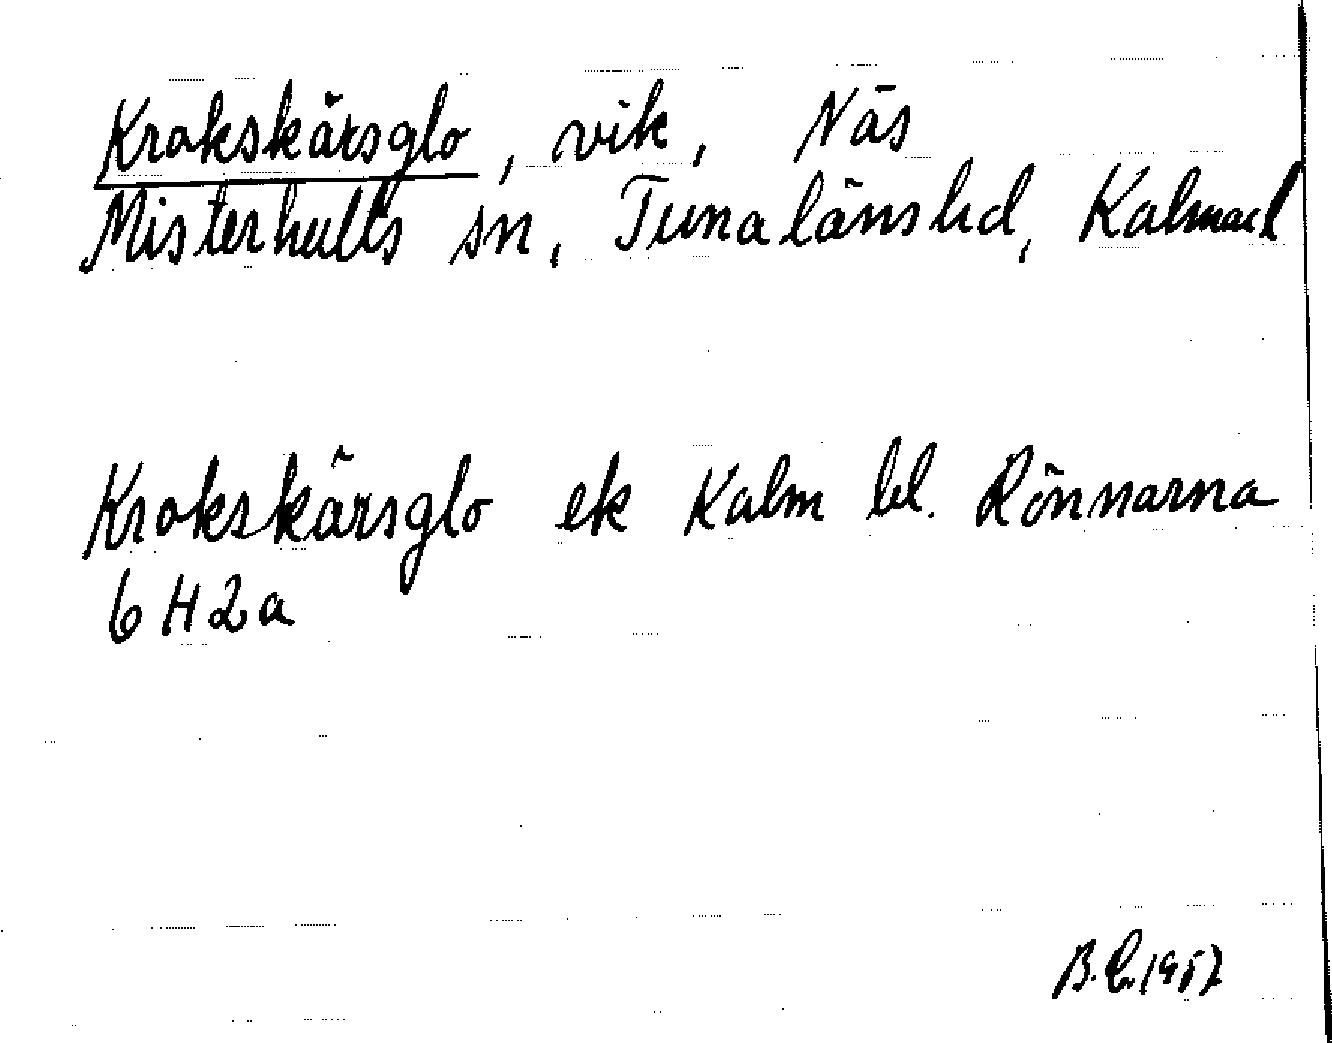 Krokskärsglo, vik, Näs
Misterhults sn, Tunaläns hd, Kalmar l
Krokskärsglo ek Kalm bl. Rönnarna
6 H 2 a
B.E. 1957